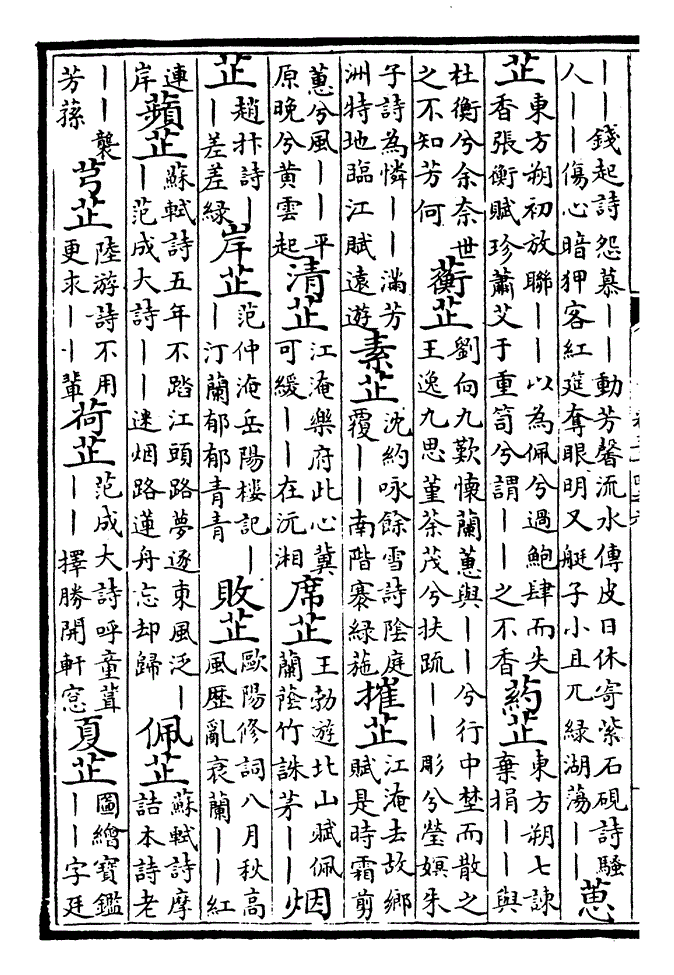 ——錢起詩怨慕——動芳馨流水傳皮日休寄紫石硯詩騷
人——傷心暗狎客紅筵奪眼明又艇子小且兀綠湖蕩——
蕙
芷
東方朔初放聯——以為佩兮過鮑肆而失
香張衡賦珍蕭艾于重笥兮謂——之不香
葯芷
東方朔七諫
棄捐——與
杜衡兮余奈世
之不知芳何
蘅芷
劉向九歎懷蘭蕙與——兮行中埜而散之
王逸九思菫荼茂兮扶疏——彫兮瑩嫇朱
子詩為憐——滿芳
洲特地臨江賦遠遊
素芷
沈約咏餘雪詩陰庭
覆——南階褰綠葹
摧芷
江淹去故鄉
賦是時霜剪
蕙兮風——平
原晚兮黃雲起
清芷
江淹樂府此心冀
可緩——在沅湘
席芷
王勃遊北山賦佩
蘭蔭竹誅茅——
烟
芷
趙抃詩—
—差差綠
岸芷
范仲淹岳陽樓記—
—汀蘭郁郁青青
敗芷
歐陽修詞八月秋高
風歷亂衰蘭——紅
連
岸
蘋芷
蘇軾詩五年不踏江頭路夢逐東風泛—
—范成大詩——迷烟路蓮舟忘却歸
佩芷
蘇軾詩摩
詰本詩老
——襲
芳蓀
芎芷
陸游詩不用
更求——輩
荷芷
范成大詩呼童葺
——擇勝開軒窓
夏芷
圖繪寶鑑
——字廷